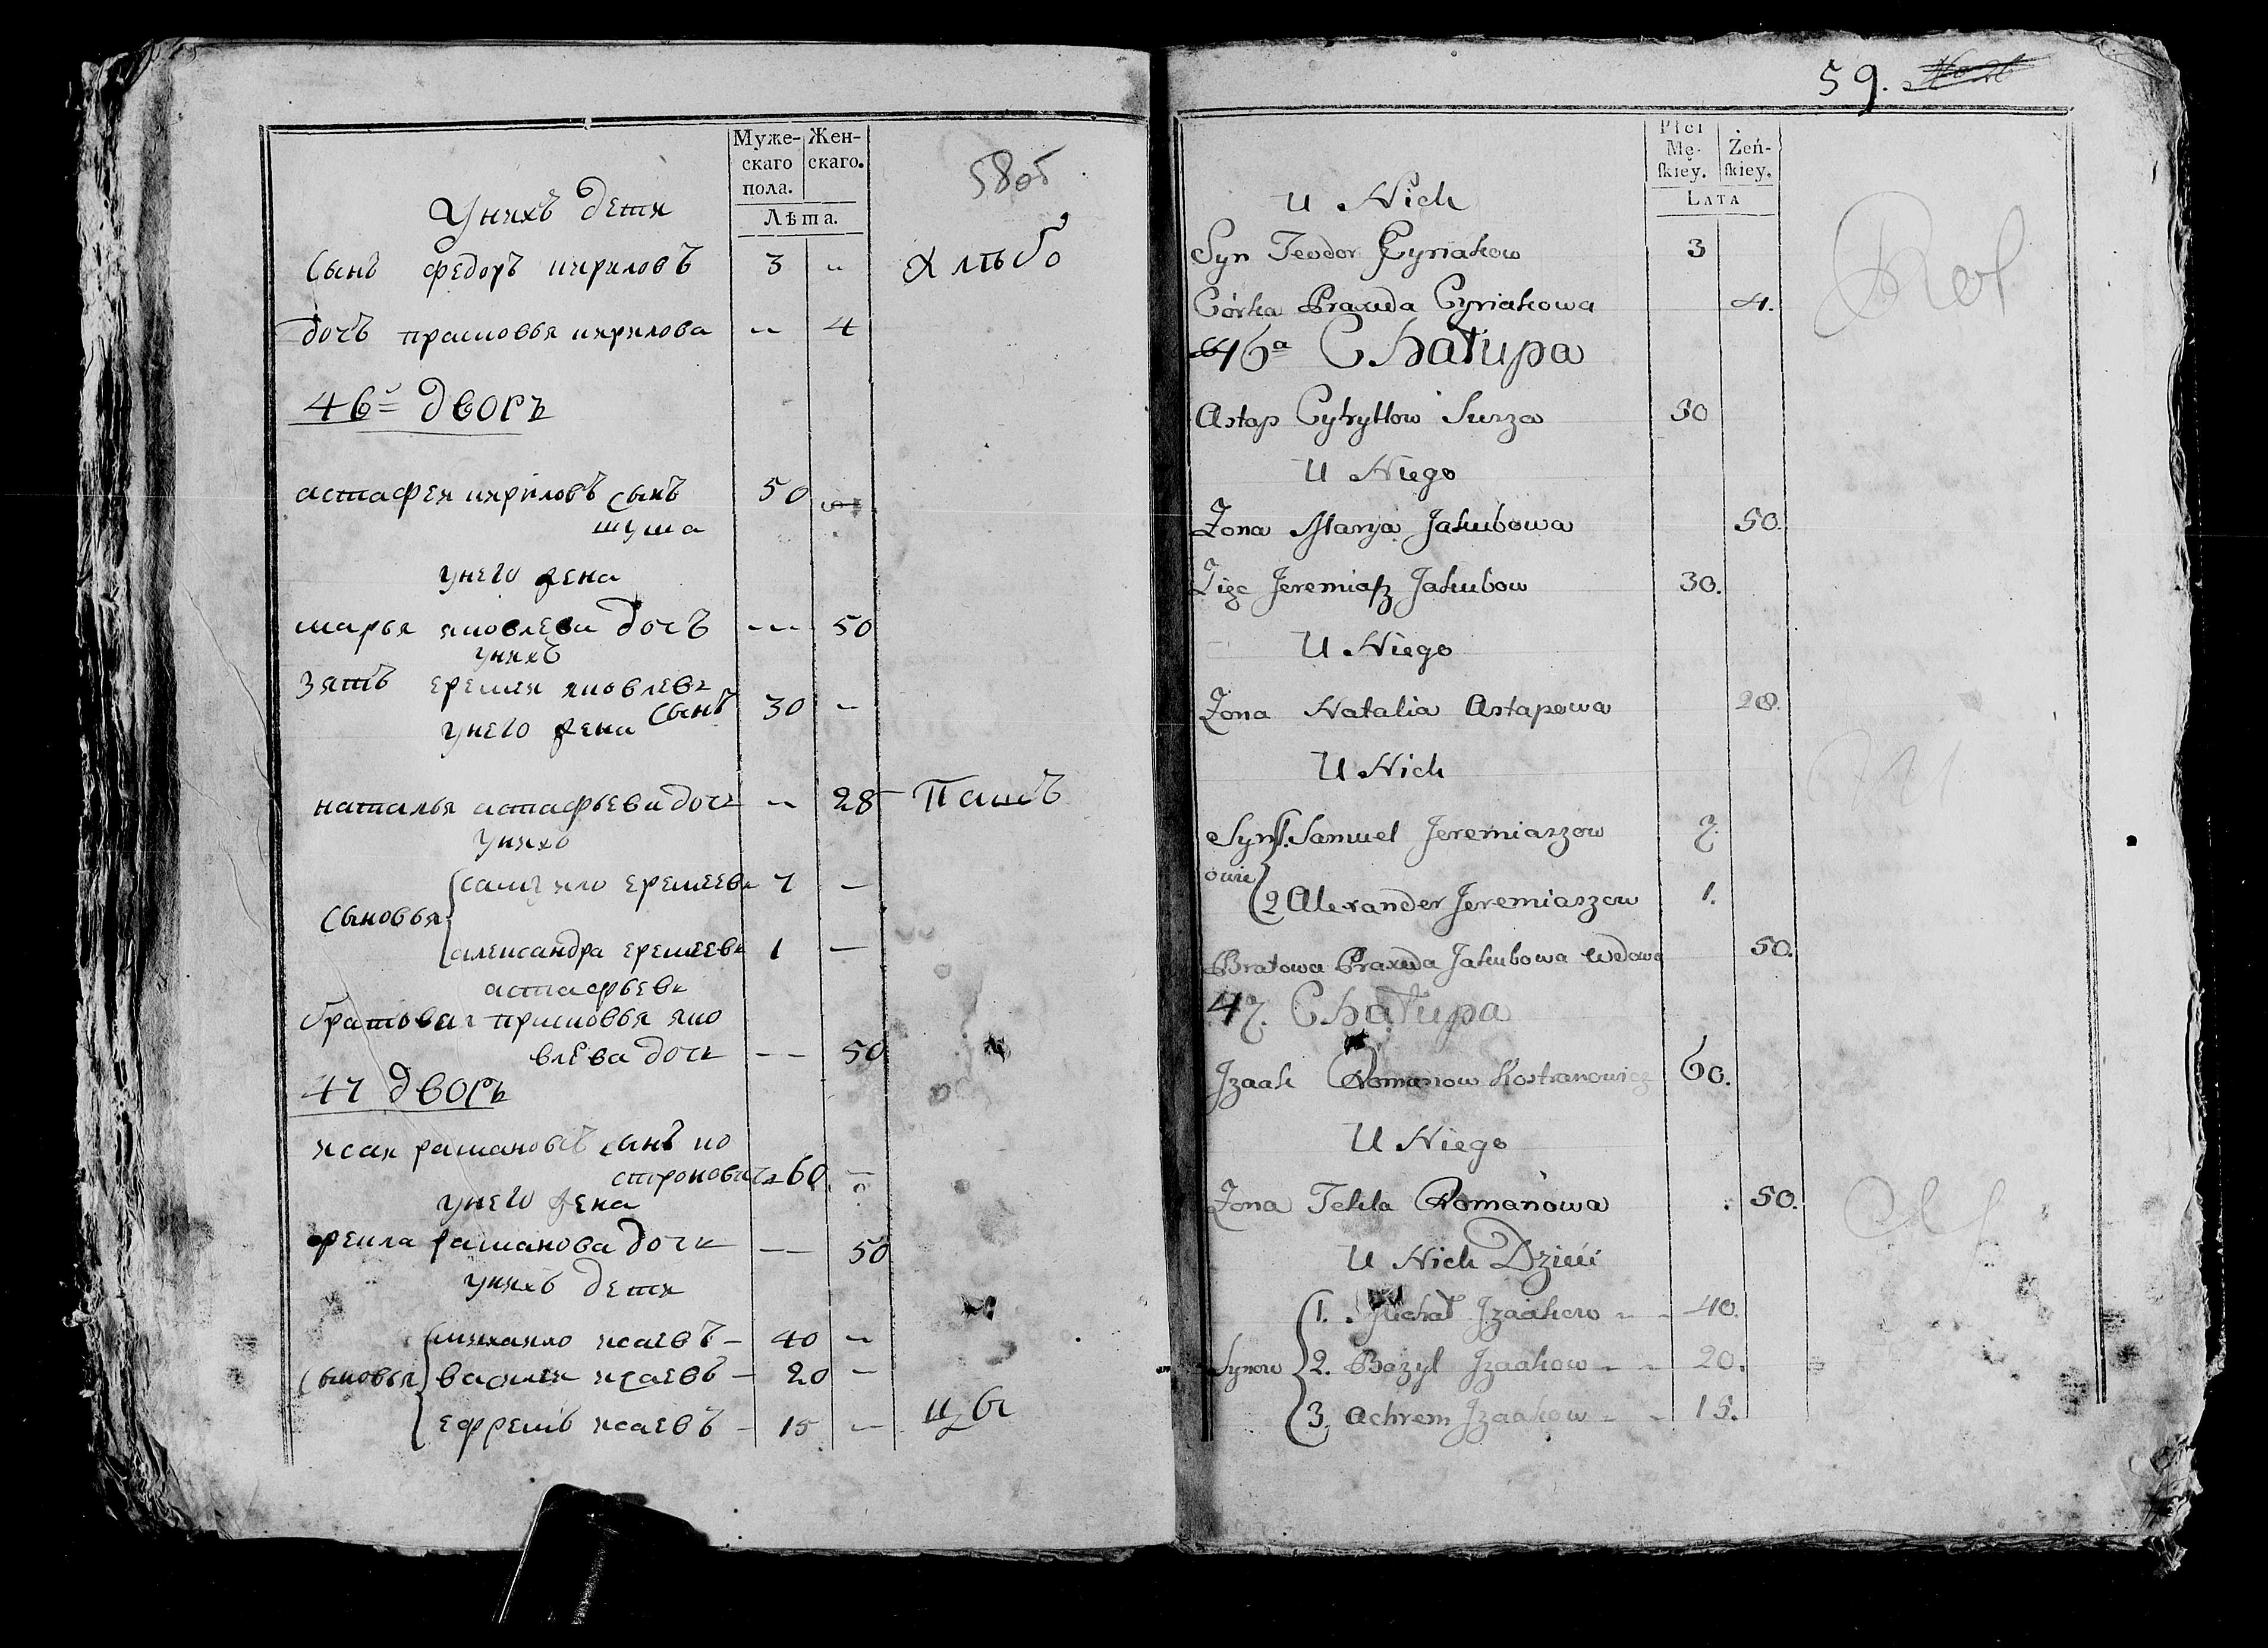 Муже-
скаго
пола.
Жен-
скаго.
Лѣта.
58об
У нихъ дети
сынъ федоръ кириловъ 3 "
хлѣбо
дочъ прасковья кирилова -- 4
46й дворъ
астафеи кириловъ сынъ 50
шуша
у него жена
марья яковлева дочъ --- 50
у нихъ
зять еремеи яковлевъ
сынъ 30 -
у него жена
наталья астафьева дочь -- 28
пашъ
у нихъ
сыновья
самуило еремеевъ 7 -
александра еремеевъ 1 -
астафьевъ
братовая прасковья яко
влева дочь -- 50
47 дворъ
исак романовъ сынъ ко
строновичъ 60 -
у него жена
фекла романова дочь -- 50
у нихъ дети
сыновья
михаило исаевъ - 40 -
василеи исаевъ - 20 -
ефремъ исаевъ - 15 -
59.
Płci
Mę-
ſkiey.
Żeń-
ſkiey.
LATA
U Nich
Syn Teodor Cyriakow 3
Córka Praxeda Cyriakowa 4.
46a Chałupa
Astap Cyryllow Susza 50
U Niego
Żona Marya Jakubowa 50.
Zięc Jeremiaſz Jakubow 30.
U Niego
Żona Natalia Astapowa 28.
U Nich
Syn
owie
1. Samuel Jeremiaszow 7.
2 Alexander Jeremiaszow 1.
Bratowa Praxeda Jakubowa wdowa 50.
47. Chałupa
Jzaak Romanow Kostranowicz 60.
U Niego
Żona Tekla Romanowa 50.
U Nich Dzieci
Synow
1. Michał Jzaakow - - 40.
2. Bazyl Jzaakow - - 20.
3. Achrem Jzaakow - - 15.